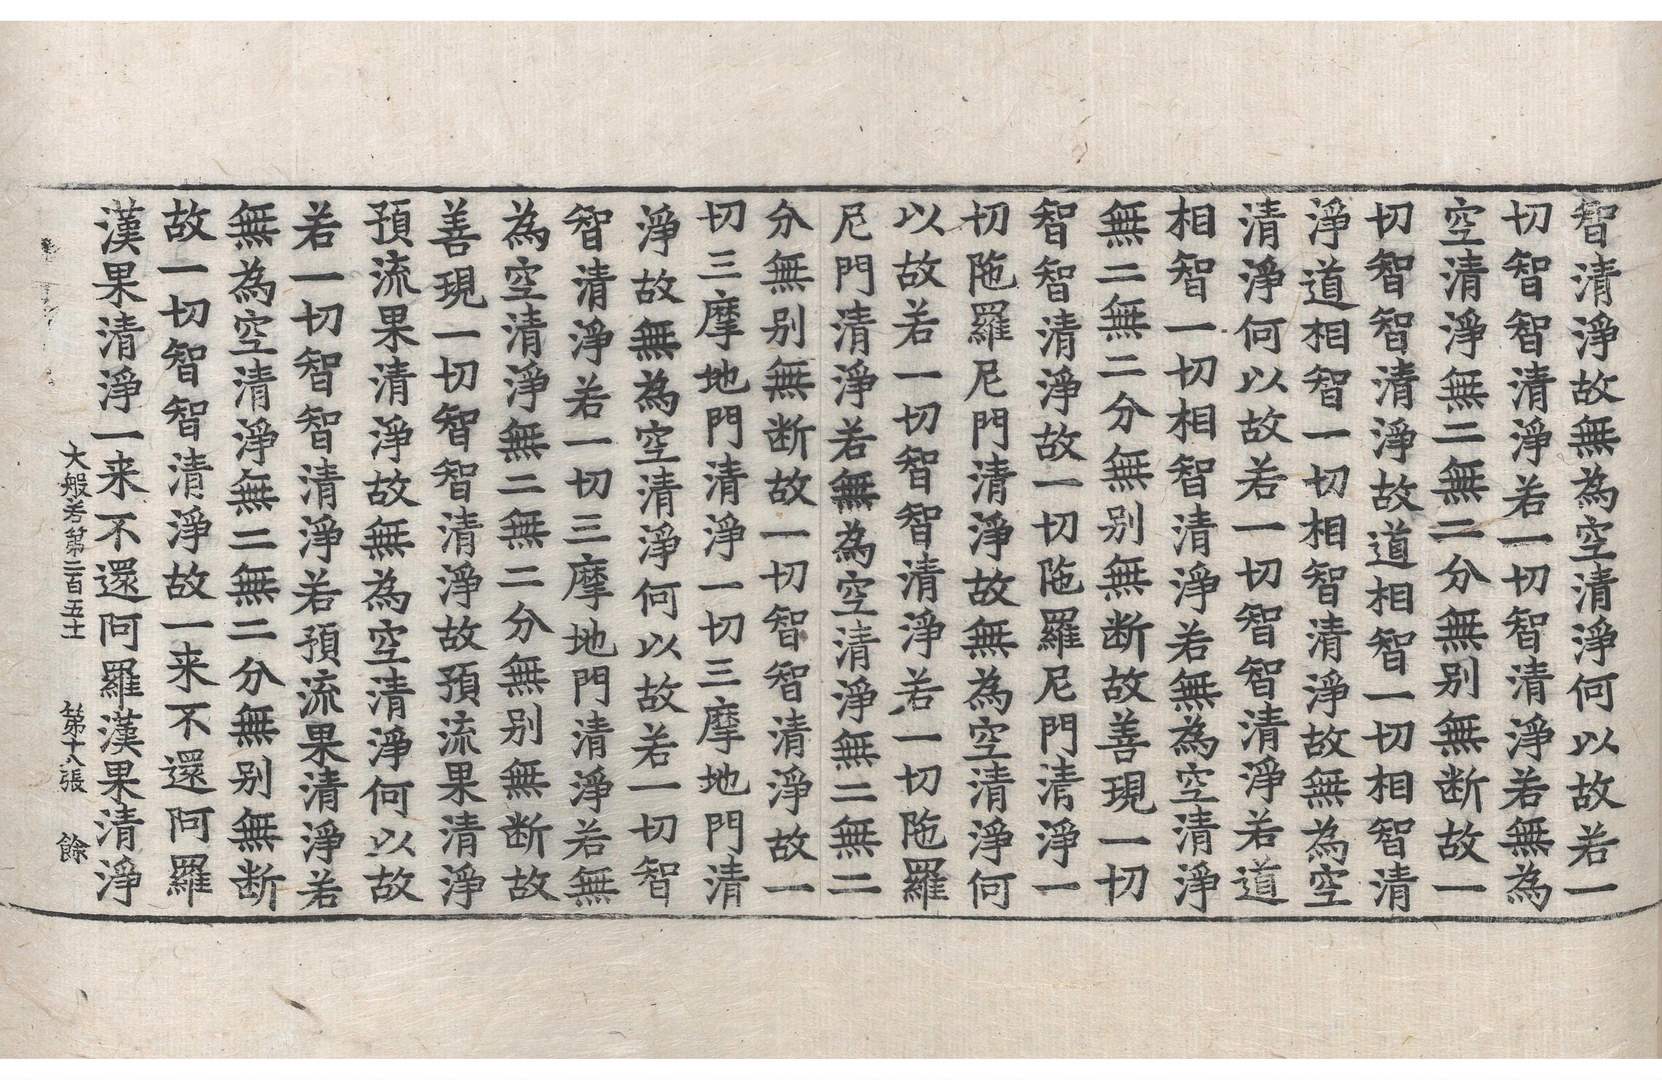 智清淨故無為空清淨何以故若一
切智智清淨若一切智清淨若無為
空清淨無二無二分無别無断故一
切智智清淨故道相智一切相智清
淨道相智一切相智清淨故無為空
清淨何以故若一切智智清淨若道
相智一切相智清淨若無為空清淨
無二無二分無别無断故善現一切
智智清淨故一切陁羅尼門清淨一
切陁羅尼門清淨故無為空清淨何
以故若一切智智清淨若一切陁羅
尼門清淨若無為空清淨無二無二
分無别無断故一切智智清淨故一
切三摩地門清淨一切三摩地門清
淨故無為空清淨何以故若一切智
智清淨若一切三摩地門清淨若無
為空清淨無二無二分無别無断故
善現一切智智清淨故預流果清淨
預流果清淨故無為空清淨何以故
若一切智智清淨若預流果清淨若
無為空清淨無二無二分無别無断
故一切智智清淨故一来不還阿羅
漢果清淨一来不還阿羅漢果清淨
大般若第二百五十一 第十八張 餘